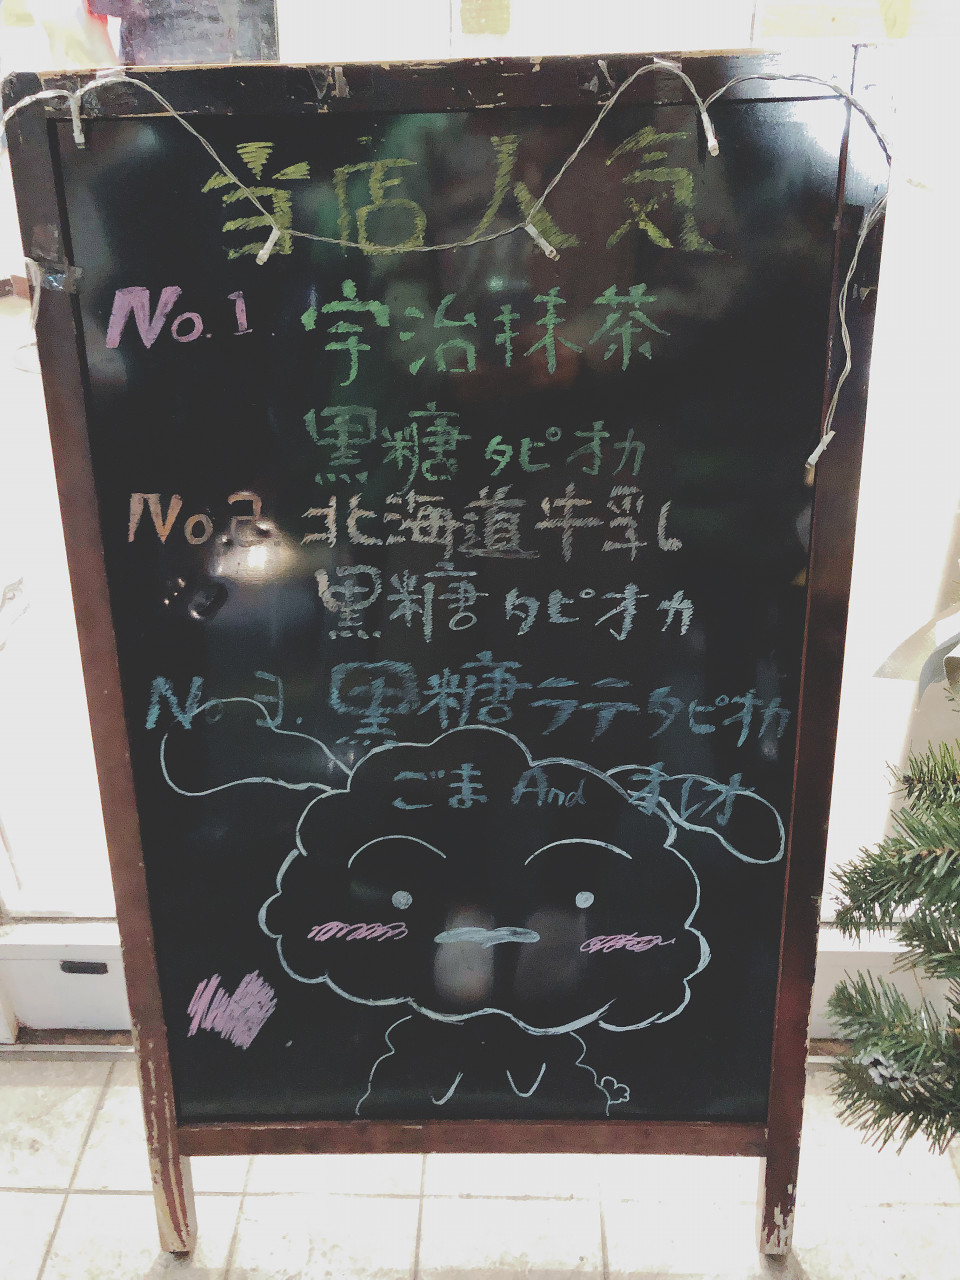 当店人気
No.1 宇治抹茶
黒糖タピオカ
No.2 北海道牛乳
黒糖タピオカ
No.3. 黒糖ラテタピオカ
ごま And